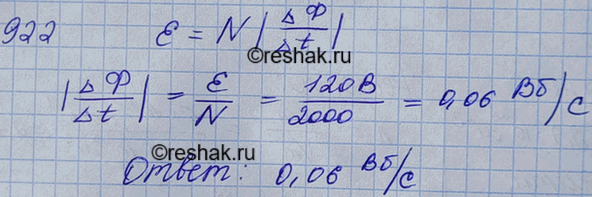 922 ε = N |ΔФ/Δt|
©reshak.ru
|ΔФ/Δt| = ε/N = 120В/2000 = 0,06 Вб/с
©reshak.ru
Ответ: 0,06 Вб/с